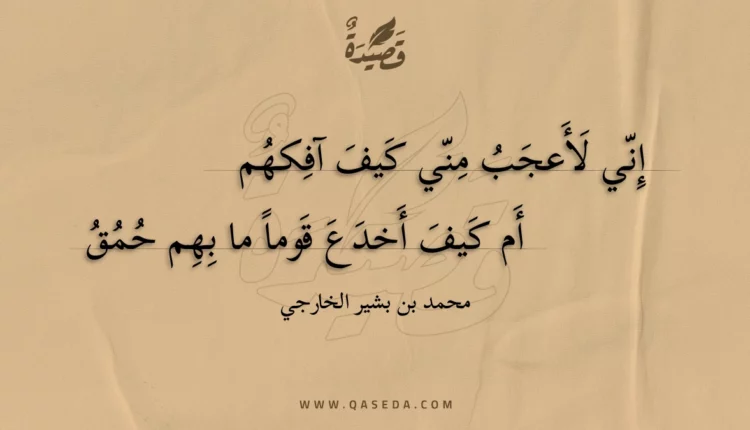 قَصِيْدَةٌ
إِنّي لَأَعجَبُ مِنّي كَيفَ آفِكهُم
أَم كَيفَ أَخدَعَ قَوماً ما بِهِم حُمُقُ
محمد بن بشير الخارجي
WWW.QASEDA.COM